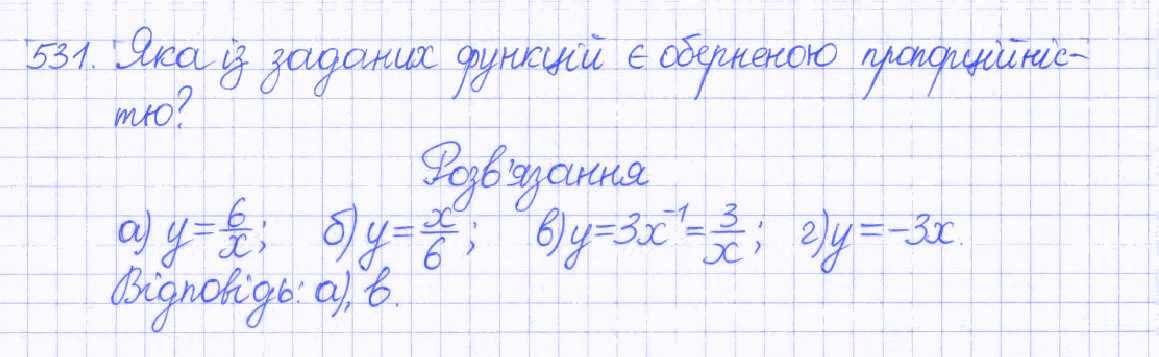 531. Яка із заданих функцій є оберненою пропорційніс-
тю?
Розв'язання
а) y = 6/x; б) y = x/6; в) y = 3x⁻¹ = 3/x; г) y = -3x.
Відповідь: а), в.